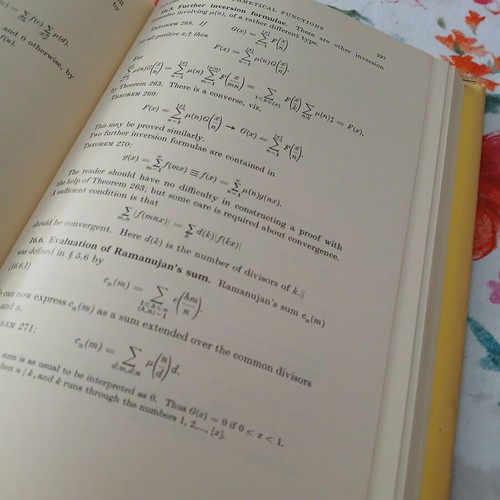 and 0 otherwise, by
METICAL FUNCTIONS
237
16.5. Further inversion formulae. There are other inversion
formulae involving μ(n), of a rather different type.
THEOREM 268. If
G(x) = \sum_{n=1}^{[x]} F(x/n)
for all positive x,† then
F(x) = \sum_{n=1}^{[x]} μ(n)G(x/n).
For
by Theorem 263. There is a converse, viz.
THEOREM 269:
F(x) = \sum_{n=1}^{[x]} μ(n)G(x/n) → G(x) = \sum_{n=1}^{[x]} F(x/n).
This may be proved similarly.
Two further inversion formulae are contained in
THEOREM 270:
g(x) = \sum_{m=1}^{∞} f(mx) ≡ f(x) = \sum_{n=1}^{∞} μ(n)g(nx).
The reader should have no difficulty in constructing a proof with
the help of Theorem 263; but some care is required about convergence.
A sufficient condition is that
\sum_{m,n} |f(mnx)| = \sum_{k} d(k)|f(kx)|
should be convergent. Here d(k) is the number of divisors of k.§
16.6. Evaluation of Ramanujan's sum. Ramanujan's sum c_n(m)
was defined in § 5.6 by
(16.6.1)
c_n(m) = \sum_{1≤h≤n, (h,n)=1} e(hm/n).
can now express c_n(m) as a sum extended over the common divisors
and n.
REM 271:
c_n(m) = \sum_{d|m, d|n} μ(n/d)d.
sum is as usual to be interpreted as 0. Thus G(x) = 0 if 0 < x < 1.
hen n / k, and k runs through the numbers 1, 2,..., [x].